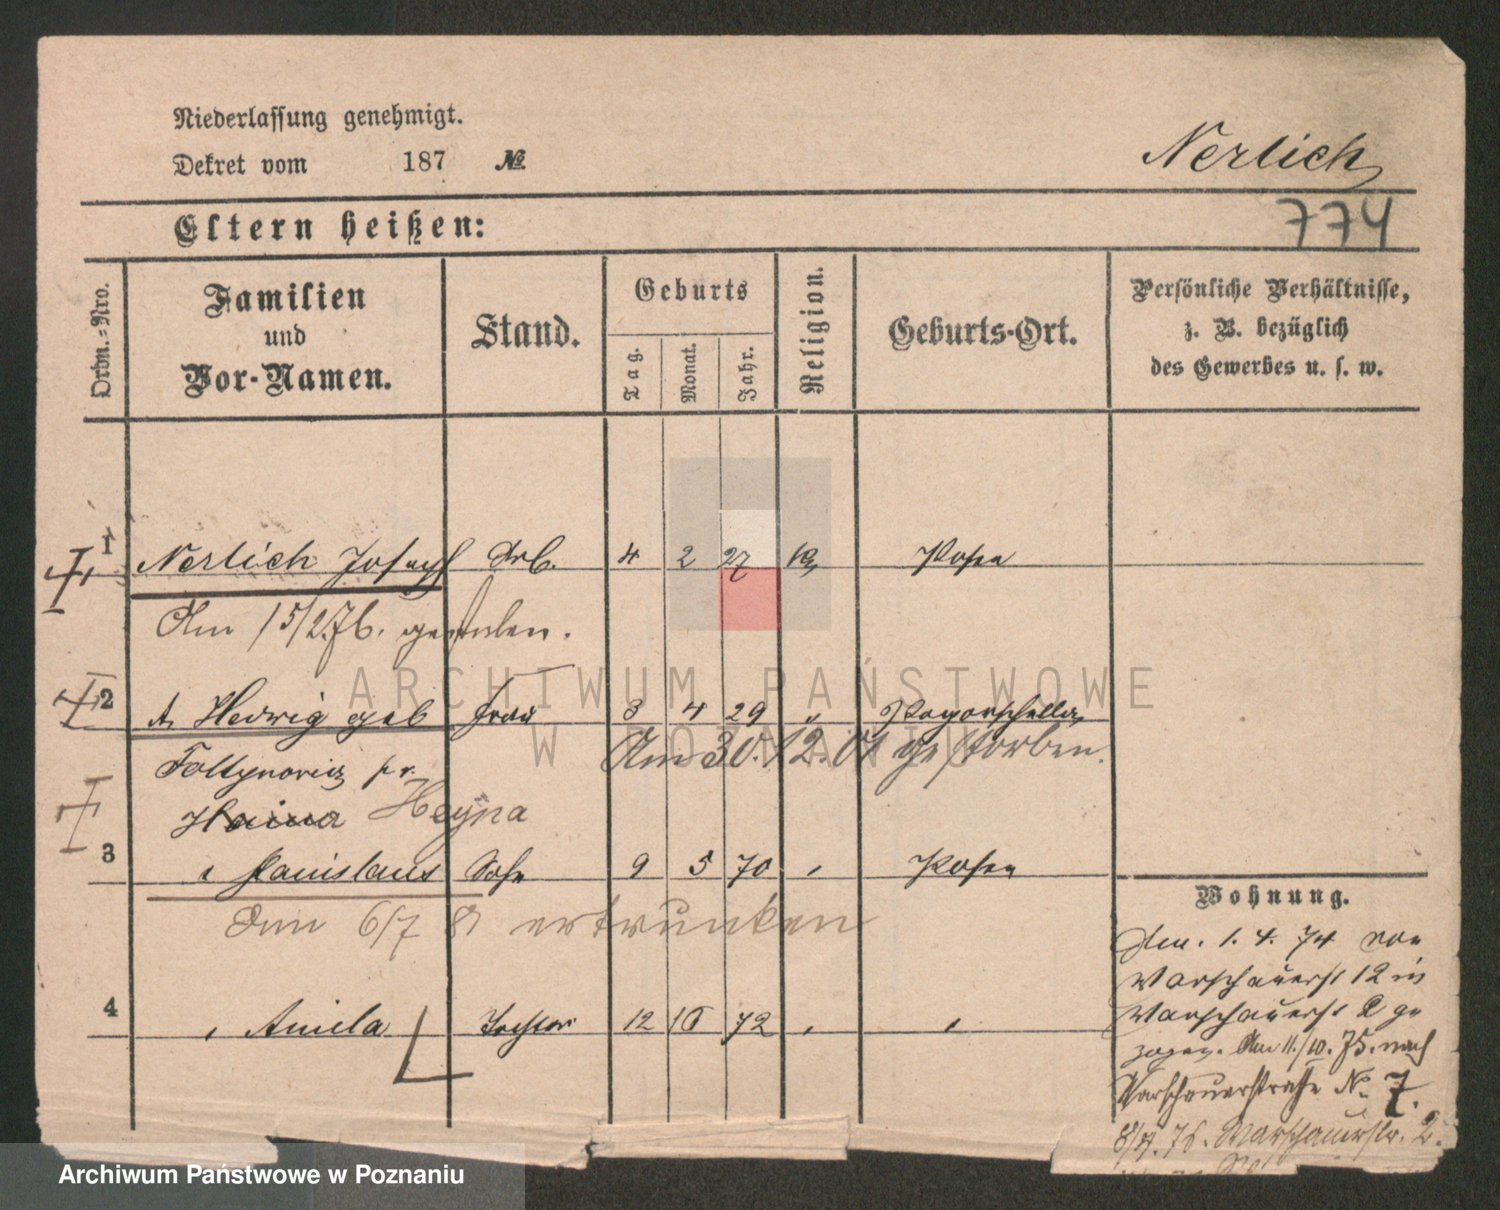 Niederlassung genehmigt.
Dekret vom 187 №
Nerlich
774
Eltern heißen:
Ordn.-Nro.
Familien und Vor-Namen.
Stand.
Geburts
Tag.
Monat.
Jahr.
Religion.
Geburts-Ort.
Persönliche Verhältnisse,
z. B. bezüglich
des Gewerbes u. s. w.
1 Nerlich Joseph Arb. 4 2 27 Posen
Am 15/2.76. gestorben.
2 Hedwig geb Frau 3 4 29 "
Am 30.12.01 gestorben.
Foltynowicz fr.
Haina Heyna
3 " Stanislaus Sohn 9 5 70 " Posen
Am 6/7 81 ertrunken
4 " Aniela Tochter 12 10 72 " "
Wohnung.
Am 1. 4. 74 von
Warschauerst 12 in
Warschauerst 2 ge
zogen. Am 11./10. 75. nach
Warschauerstraße No. 7.
76. Warschauerstr. 2.
ARCHIWUM PAŃSTWOWE
W POZNANIU
Archiwum Państwowe w Poznaniu